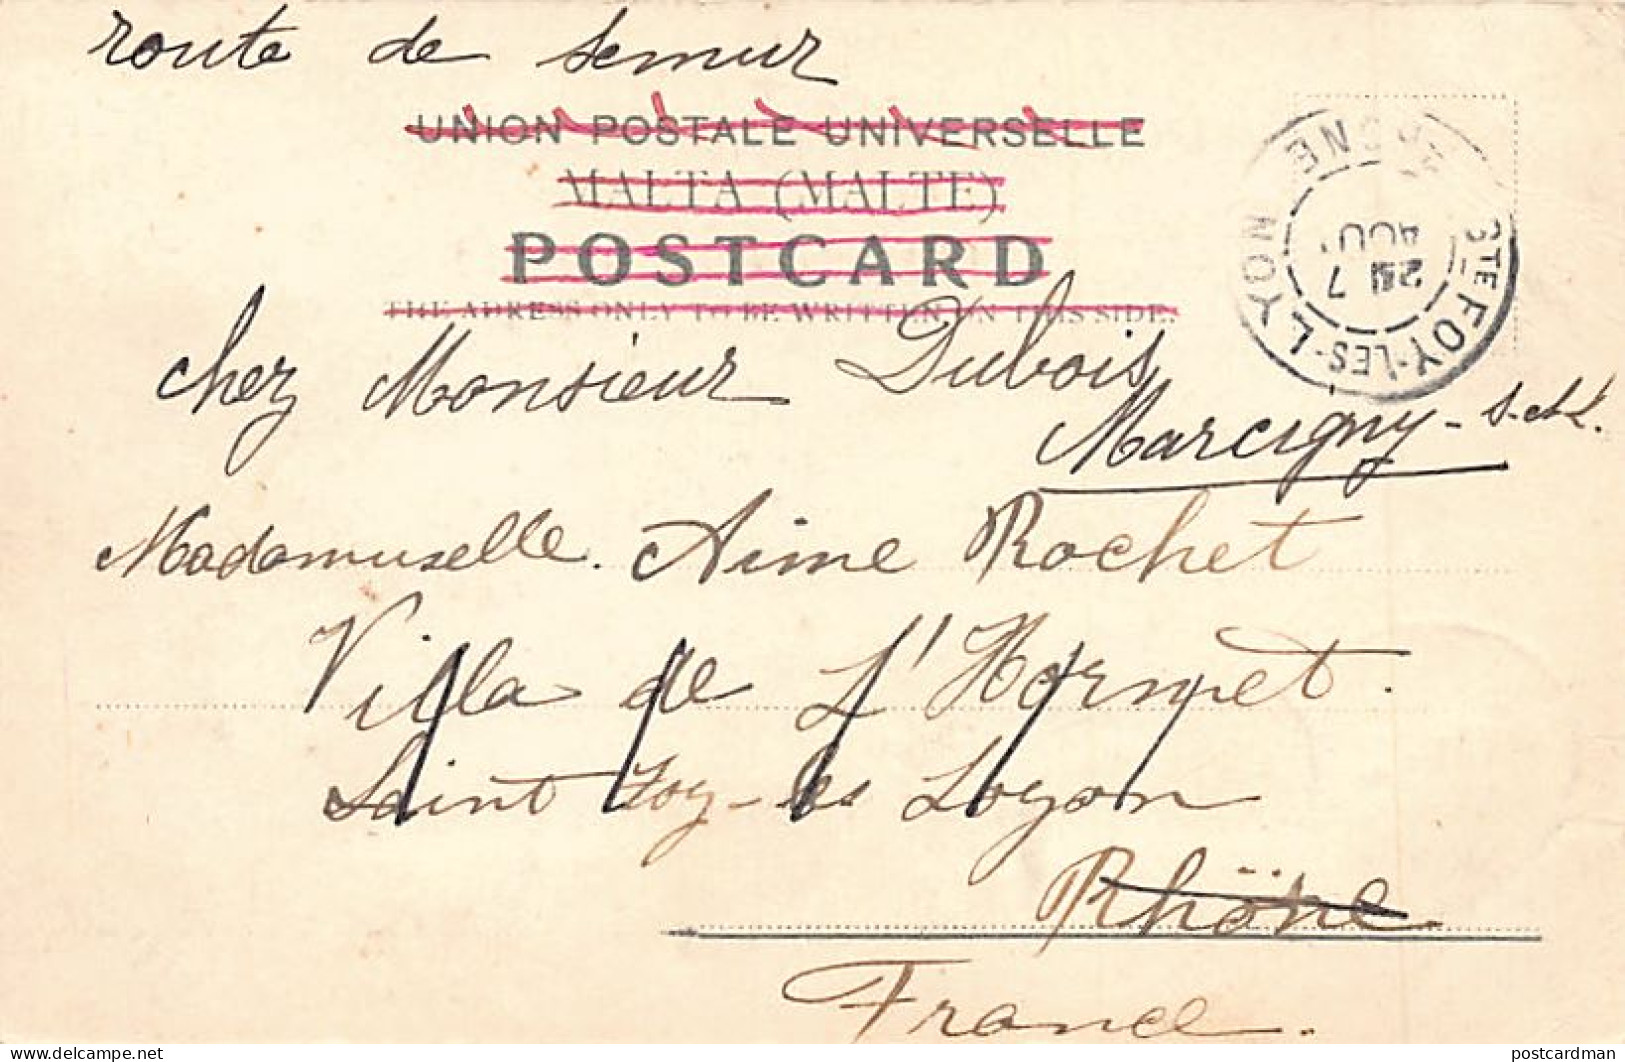 route de Semur
UNION POSTALE UNIVERSELLE
MALTA (MALTE)
POSTCARD
THE ADRESS ONLY TO BE WRITTEN ON THIS SIDE.
STE FOY-LES-LYON
AOUT
chez Monsieur Dubois
Marcigny - S. et L.
Mademuselle. Aime Rochet
Villa de L'Hornpet.
Saint Foy-les Loyon
Rhône.
France.
postcardman